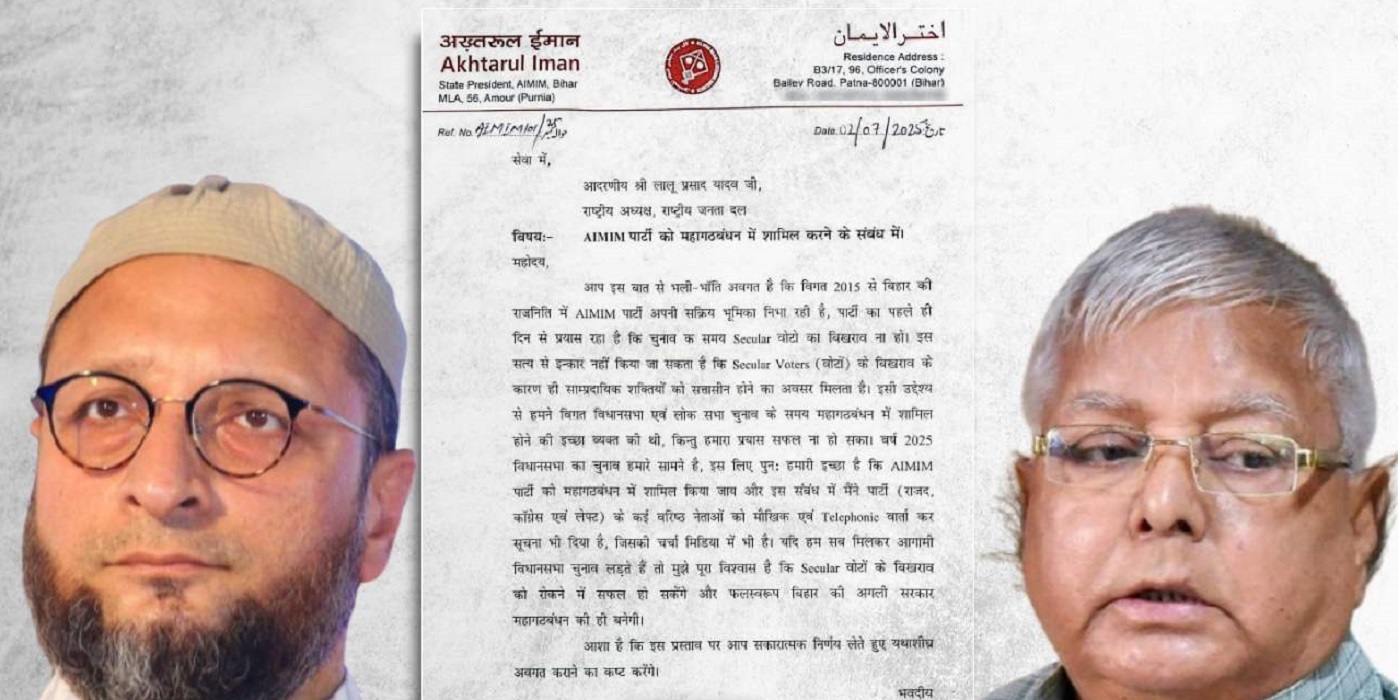 अख़्तरूल ईमान
Akhtarul Iman
State President, AIMIM, Bihar
MLA, 56, Amour (Purnia)
اختر الایمان
Residence Address :
B3/17, 96, Officer's Colony
Bailey Road, Patna-800001 (Bihar)
Ref. No.
Date 02/07/2025
सेवा में,
आदरणीय श्री लालू प्रसाद यादव जी,
राष्ट्रीय अध्यक्ष, राष्ट्रीय जनता दल
विषय:- AIMIM पार्टी को महागठबंधन में शामिल करने के संबंध में।
महोदय,
आप इस बात से भली-भाँति अवगत है कि विगत 2015 से बिहार की
राजनिति में AIMIM पार्टी अपनी सक्रिय भूमिका निभा रही है, पार्टी का पहले ही
दिन से प्रयास रहा है कि चुनाव के समय Secular वोटो का बिखराव ना हो। इस
सत्य से इन्कार नहीं किया जा सकता है कि Secular Voters (वोटों) के बिखराव के
कारण ही साम्प्रदायिक शक्तियों को सत्तासीन होने का अवसर मिलता है। इसी उद्देश्य
से हमने विगत विधानसभा एवं लोक सभा चुनाव के समय महागठबंधन में शामिल
होने की इच्छा व्यक्त की थी, किन्तु हमारा प्रयास सफल ना हो सका। वर्ष 2025
विधानसभा का चुनाव हमारे सामने है, इस लिए पुन: हमारी इच्छा है कि AIMIM
पार्टी को महागठबंधन में शामिल किया जाय और इस संबंध में मैंने पार्टी (राजद,
काँग्रेस एवं लेफ्ट) के कई वरिष्ठ नेताओं को मौखिक एवं Telephonic वार्ता कर
सूचना भी दिया है, जिसकी चर्चा मिडिया में भी है। यदि हम सब मिलकर आगामी
विधानसभा चुनाव लड़ते हैं तो मुझे पूरा विश्वास है कि Secular वोटों के बिखराव
को रोकने में सफल हो सकेंगे और फलस्वरूप बिहार की अगली सरकार
महागठबंधन की ही बनेगी।
आशा है कि इस प्रस्ताव पर आप सकारात्मक निर्णय लेते हुए यथाशीघ्र
अवगत कराने का कष्ट करेंगे।
भवदीय